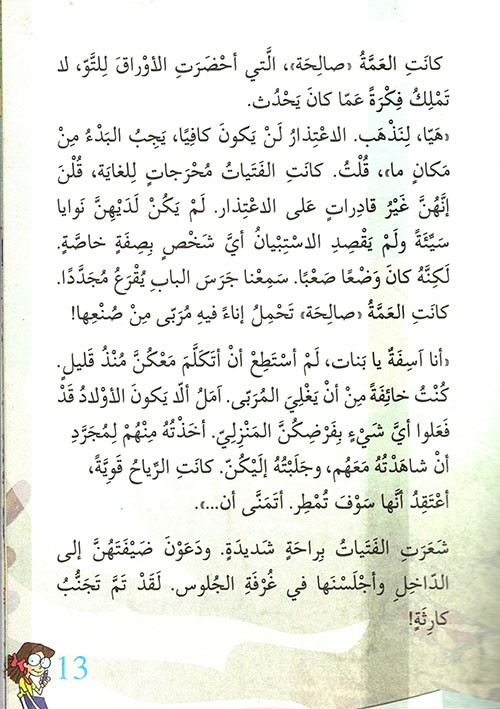 كانَتِ العَمَّةُ «صالِحَة»، الَّتي أحْضَرَتِ الأوْراقَ لِلتَّوّ، لا
تَمْلِكُ فِكْرَةً عَمّا كانَ يَحْدُث.
«هَيّا، لِنَذْهَب. الاعْتِذارُ لَنْ يَكونَ كافِيًا، يَجِبُ البَدْءُ مِنْ
مَكانٍ ما»، قُلْتُ. كانَتِ الفَتَياتُ مُحْرَجاتٍ لِلغايَة، قُلْنَ
إنَّهُنَّ غَيْرُ قادِراتٍ عَلى الاعْتِذار. لَمْ يَكُنْ لَدَيْهِنَّ نَوايا
سَيِّئَةً ولَمْ يَقْصِدِ الاسْتِبْيانُ أيَّ شَخْصٍ بِصِفَةٍ خاصَّةٍ.
لَكِنَّهُ كانَ وَضْعًا صَعْبًا. سَمِعْنا جَرَسَ البابِ يُقْرَعُ مُجَدَّدًا.
كانَتِ العَمَّةُ «صالِحَة» تَحْمِلُ إناءً فيهِ مُرَبّى مِنْ صُنْعِها!
«أنا آسِفَةٌ يا بَنات، لَمْ أسْتَطِعْ أنْ أتَكَلَّمَ مَعْكُنَّ مُنْذُ قَليلٍ.
كُنْتُ خائِفَةً مِنْ أنْ يَغْلِيَ المُرَبّى. آمَلُ ألّا يَكونَ الأوْلادُ قَدْ
فَعَلوا أيَّ شَيْءٍ بِفَرْضِكُنَّ المَنْزِلِيّ. أخَذْتُهُ مِنْهُمْ لِمُجَرَّدِ
أنْ شاهَدْتُهُ مَعَهُم، وجَلَبْتُهُ إلَيْكُنّ. كانَتِ الرِّياحُ قَوِيَّةً،
أعْتَقِدُ أنَّها سَوْفَ تُمْطِر. أتَمَنَّى أن...».
شَعَرَتِ الفَتَياتُ بِراحَةٍ شَديدَةٍ. ودَعَوْنَ ضَيْفَتَهُنَّ إلى
الدّاخِلِ وأجْلَسْنَها في غُرْفَةِ الجُلوس. لَقَدْ تَمَّ تَجَنُّبُ
كارِثَةٍ!
13